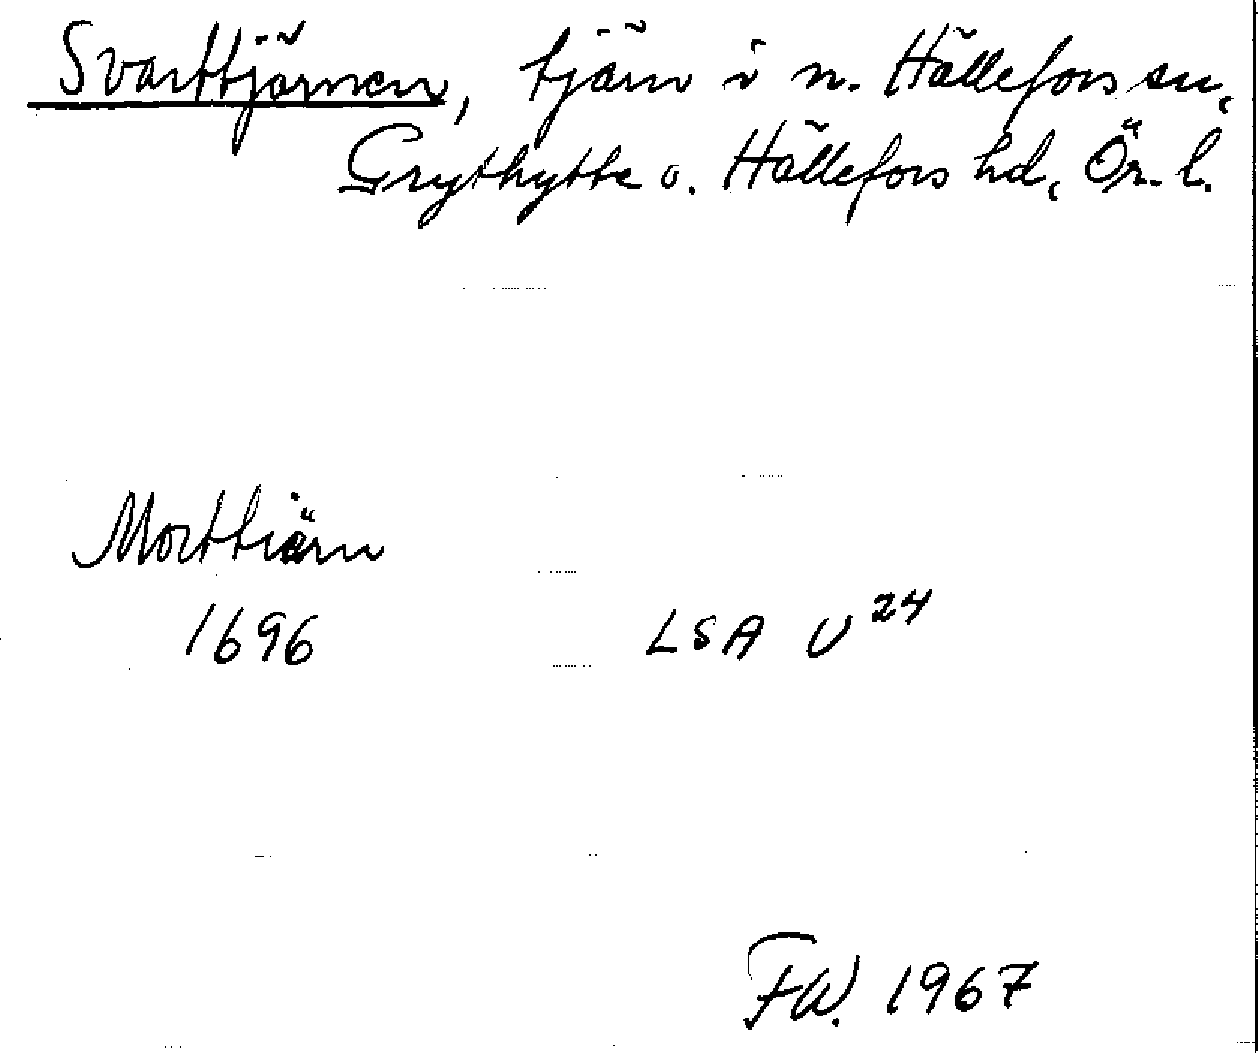 Svarttjärnen, tjärn i n. Hällefors sn,
Grythytte o. Hällefors hd, Ör. l.
Morttiärn
1696 LSA U24
FW. 1967